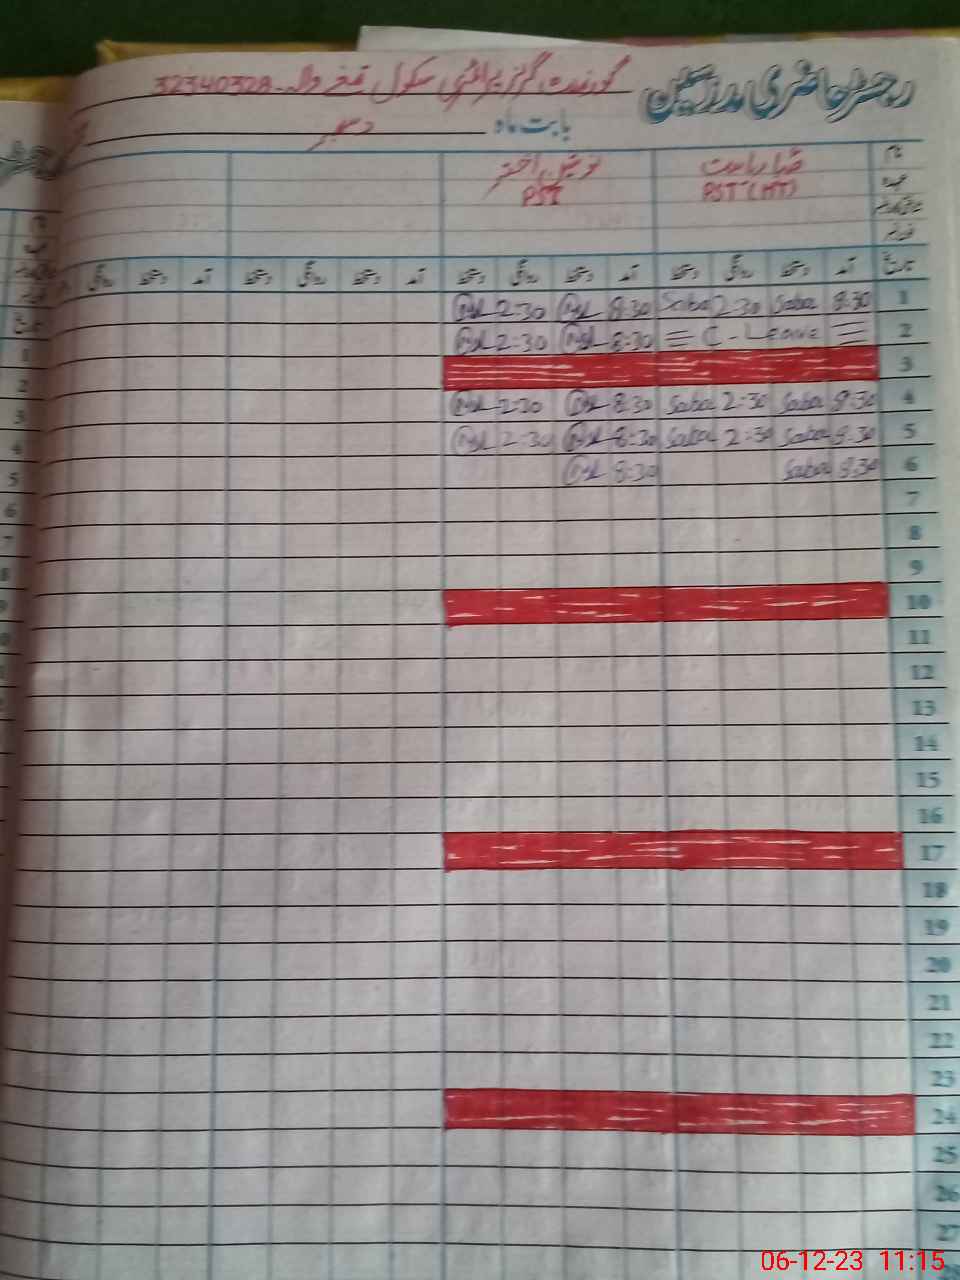 رجسٹر حاضری مدرسین
گورنمنٹ گرلز پرائمری سکول 32340328
بابت ماہ دسمبر
نام صباریاست نوشین اختر
عہدہ PST (HT) PST
تاریخ آمد دستخط روانگی دستخط آمد دستخط روانگی دستخط آمد دستخط روانگی دستخط آمد دستخط روانگی
1 8:30 Saba 2:30 Saba 8:30 2:30
2 C-Leave 8:30 2:30
3
4 8:30 Saba 2:30 Saba 8:30 2:30
5 8:30 Saba 2:30 Saba 8:30 2:30
6 8:30 Saba 8:30
7
8
9
10
11
12
13
14
15
16
17
18
19
20
21
22
23
24
25
26
27
28
06-12-23 11:15